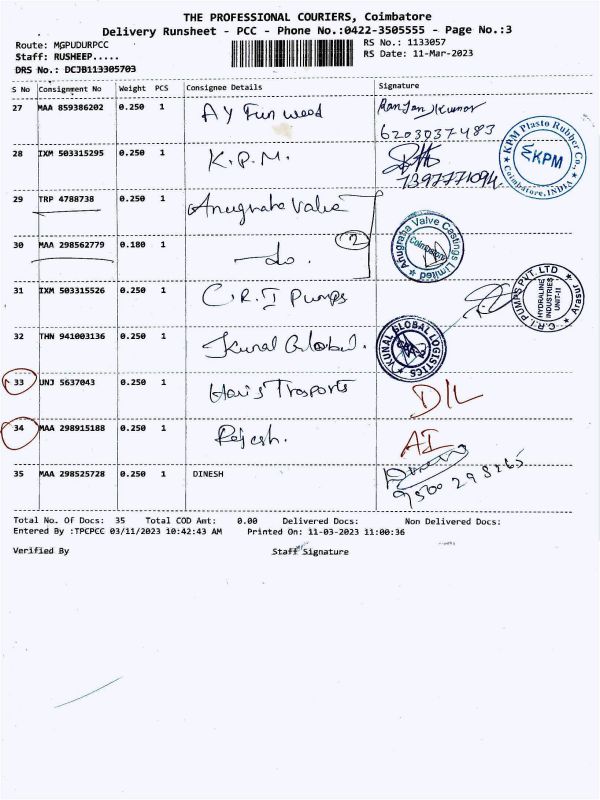 THE PROFESSIONAL COURIERS, Coimbatore
Delivery Runsheet - PCC - Phone No.:0422-3505555 - Page No.:3
Route: MGPUDURPCC
RS No.: 1133057
Staff: RUSHEEP.....
RS Date: 11-Mar-2023
DRS No.: DCJB113305703
S No Consignment No Weight PCS Consignee Details Signature
27 MAA 859386202 0.250 1 A Y Fun weed Ranjan Kumar
6203037483
28 IXM 503315295 0.250 1 K.P.M. 7397771094
KPM Plasto Rubber Co., KPM Coimbatore, INDIA
29 TRP 4788738 0.250 1 Anugraha Valve
30 MAA 298562779 0.180 1 do. 2
Anugraha Valve Castings Limited Coimbatore
31 IXM 503315526 0.250 1 C.R.I Pumps
C.R.I. PUMPS PVT. LTD HYDRALINE INDUSTRIES UNIT-II Arasur
32 THN 941003136 0.250 1 Kunal Global.
KUNAL GLOBAL LOGISTICS
33 UNJ 5637043 0.250 1 Haris Trasports D/L
34 MAA 298915188 0.250 1 Rajesh. AI
35 MAA 298525728 0.250 1 DINESH
9500298265
Total No. Of Docs: 35 Total COD Amt: 0.00 Delivered Docs: Non Delivered Docs:
Entered By :TPCPCC 03/11/2023 10:42:43 AM Printed On: 11-03-2023 11:00:36
Verified By Staff Signature